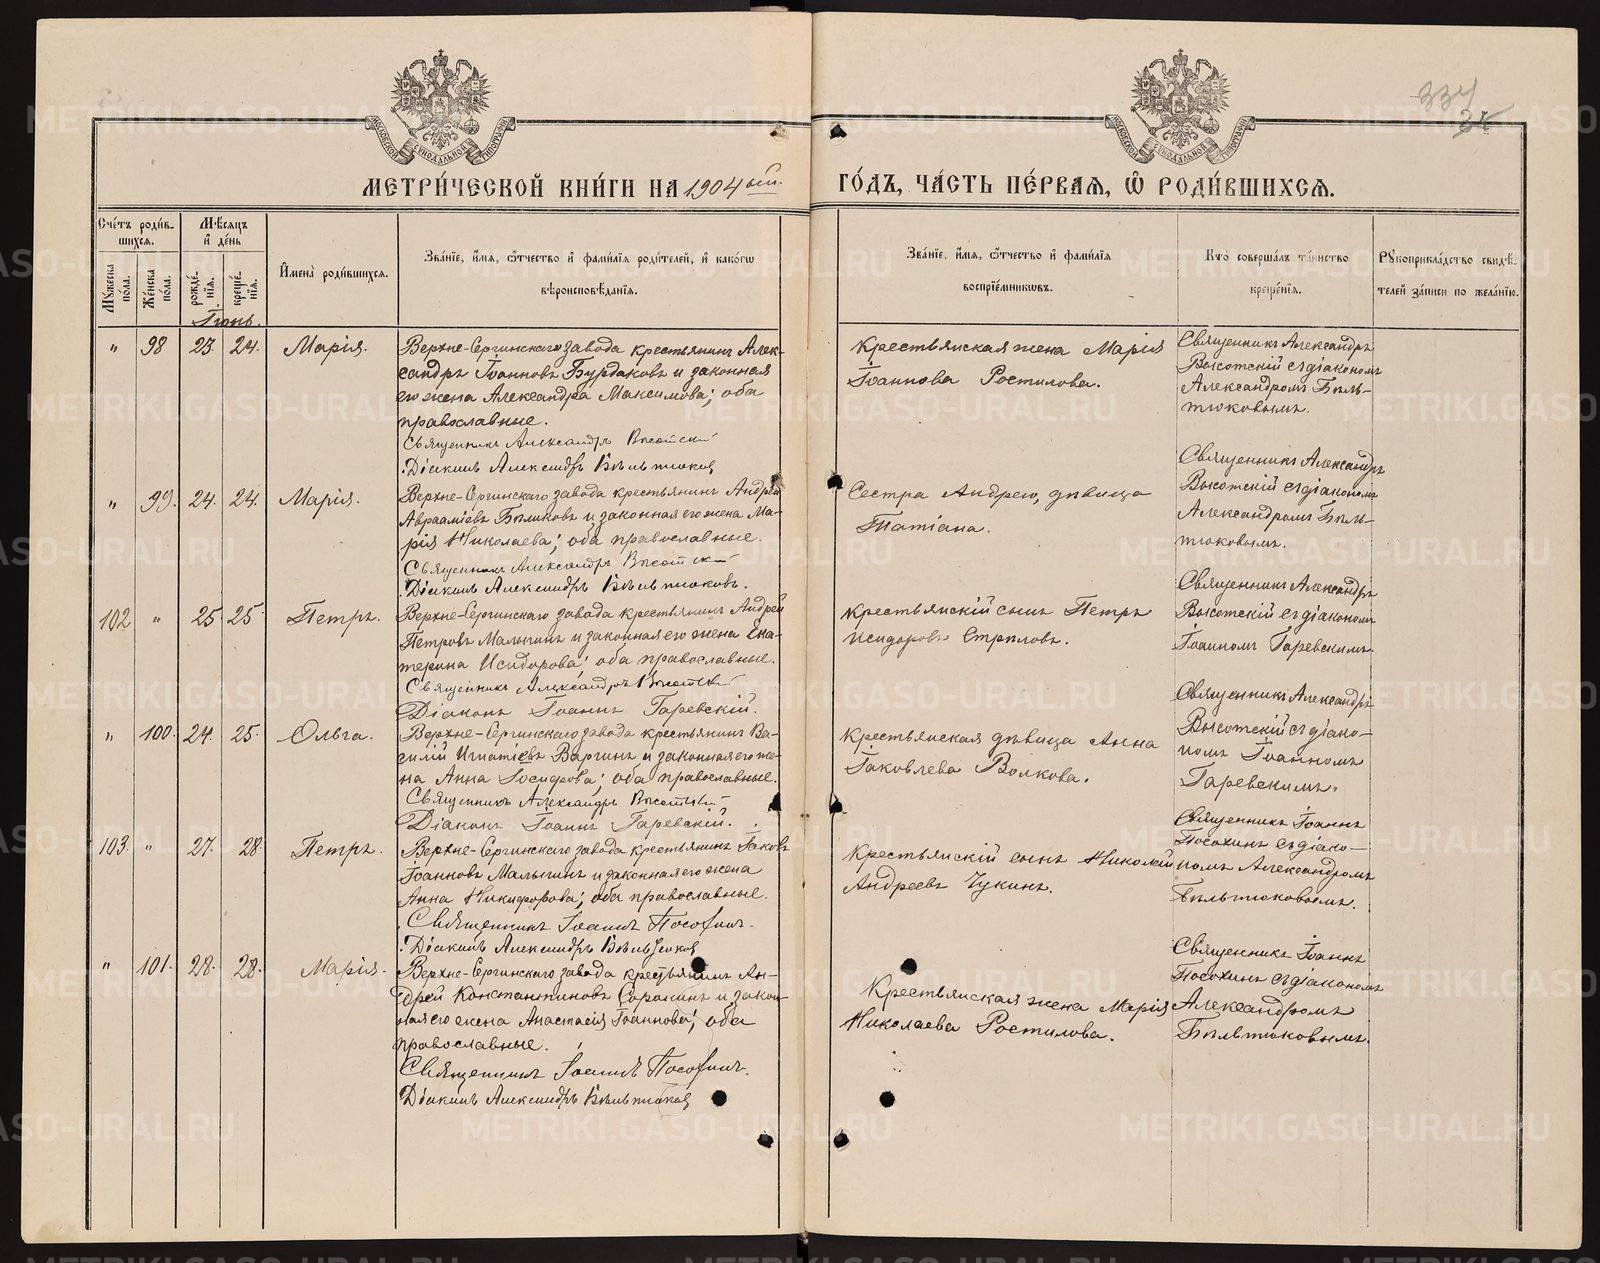 334
34
МОСКОВСКОЙ СѴНОДАЛЬНОЙ ТИПОГРАФІИ
МОСКОВСКОЙ СѴНОДАЛЬНОЙ ТИПОГРАФІИ
МЕТРИ́ЧЕСКОЙ КНИ́ГИ НА 1904ый.
ГО́ДЪ, ЧА́СТЬ ПЕ́РВАѦ, Ѿ РОДИ́ВШИХСѦ.
Сче́тъ роди́в-
шихсѧ.
Мѹ́жеска по́ла.
Же́нска по́ла.
Мѣ́сѧцъ и де́нь
рожде́нїѧ.
креще́нїѧ.
Имена̀ роди́вшихсѧ.
Зва́нїе, и́мѧ, ѻ҆́тчество и҆ фами́лїѧ роди́телей, и҆ како́гѡ
вѣроисповѣ́данїѧ.
Зва́нїе, и́мѧ, ѻ҆́тчество и҆ фами́лїѧ
воспрїе́мникѡвъ.
Кто̀ соверша́лъ та́инство
креще́нїѧ.
Рѹкоприкла́дство свидѣ́-
телей за́писи по жела́нїю.
Іюнь.
" 98 23. 24. Марія.
Верхне-Сергинскаго завода крестьянинъ Алек-
сандръ Іоанновъ Бурдаковъ и законная
его жена Александра Максимова; оба
православные.
Священникъ Александръ Высотскій
Діаконъ Александръ Бѣльтюковъ
Крестьянская жена Марія
Іоаннова Ростилова.
Священникъ Александръ
Высотскій съ діакономъ
Александромъ Бѣль-
тюковымъ.
" 99. 24. 24. Марія.
Верхне-Сергинскаго завода крестьянинъ Андрей
Авраамiевъ Бѣликовъ и законная его жена Ма-
рія Николаева; оба православные.
Священникъ Александръ Высотскій
Діаконъ Александръ Бѣльтюковъ.
Сестра Андрею, дѣвица
Татіана.
Священникъ Александръ
Высотскій съ діакономъ
Александромъ Бѣль-
тюковымъ.
102 " 25 25 Петръ.
Верхне-Сергинскаго завода крестьянинъ Андрей
Петровъ Малыгинъ и законная его жена Ека-
терина Исидорова; оба православные.
Священникъ Александръ Высотскій
Діаконъ Іоаннъ Гаревскій.
Крестьянскій сынъ Петръ
Исидоровъ Стрѣловъ.
Священникъ Александръ
Высотскій съ діакономъ
Іоанномъ Гаревскимъ.
" 100. 24. 25. Ольга.
Верхне-Сергинскаго завода крестьянинъ Ва-
силій Игнатіевъ Варгинъ и законная его же-
на Анна Іосифова; оба православные.
Священникъ Александръ Высотскій
Діаконъ Іоаннъ Гаревскій.
Крестьянская дѣвица Анна
Іаковлева Волкова.
Священникъ Александръ
Высотскій съ діако-
номъ Іоанномъ
Гаревскимъ.
103. " 27. 28 Петръ.
Верхне-Сергинскаго завода крестьянинъ Іаковъ
Іоанновъ Малыгинъ и законная его жена
Анна Никифорова; оба православные.
Священникъ Іоаннъ Посохинъ.
Діаконъ Александръ Бѣльтюковъ
Крестьянскій сынъ Николай
Андреевъ Чукинъ.
Священникъ Іоаннъ
Посохинъ съ діако-
номъ Александромъ
Бѣльтюковымъ.
" 101. 28. 28. Марія.
Верхне-Сергинскаго завода крестьянинъ Ан-
дрей Константиновъ Сорокинъ и закон-
ная его жена Анастасія Іоаннова; оба
православные.
Священникъ Іоаннъ Посохинъ.
Діаконъ Александръ Бѣльтюковъ
Крестьянская жена Марія
Николаева Ростилова.
Священникъ Іоаннъ
Посохинъ съ діакономъ
Александромъ
Бѣльтюковымъ.
METRIKI.GASO-URAL.RU